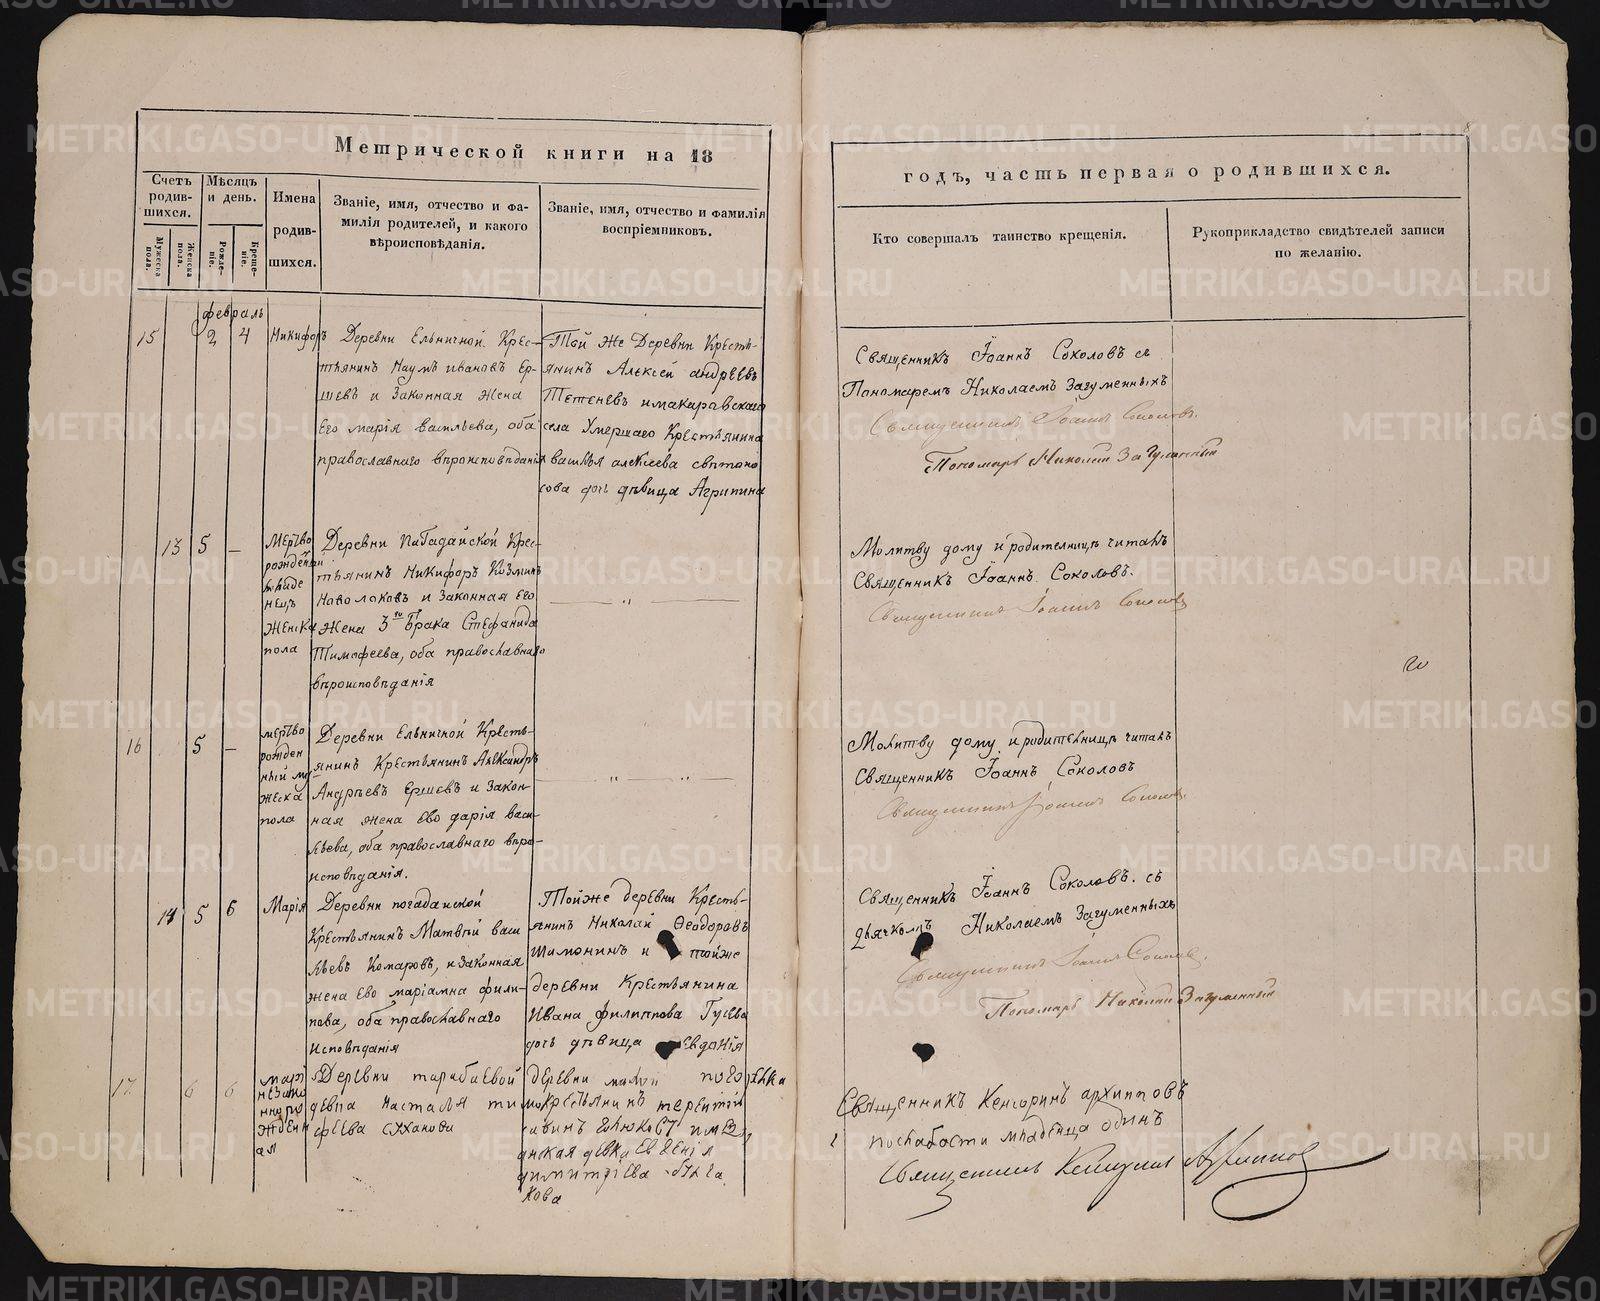 Метрической книги на 18
Счетъ родив-шихся.
Мужеска пола.
Женска пола.
Мѣсяцъ и день.
Рожде-ніе.
Креще-ніе.
Имена родив-шихся.
Званіе, имя, отчество и фа-
милія родителей, и какого
вѣроисповѣданія.
Званіе, имя, отчество и фамилія
воспріемниковъ.
февраль
15 2 4 Никифоръ
Деревни Ельничной Крес-
тьянинъ Наумъ ивановъ Ер-
шевъ и Законная жена
Его марія васильева, оба
православнаго вѣроисповѣданія
Той же Деревни Кресть-
янинъ Алексей андреевъ
Тетеневъ и макаровскаго
села Умершаго Крестьянина
алексеева
дочь дѣвица Агрипина
13 5 –
Мертво
рожденный
младе
нецъ
женска
пола
Деревни Крес-
тьянинъ Никифоръ Козминъ
Новолоковъ и Законная Его
Жена 3го Брака Стефанида
Тимофеева, оба православнаго
вѣроисповѣданія
16 5 –
мертво
рожден
ный му
жеска
пола
Деревни Ельничной Кресть-
янинъ Крестьянинъ Александръ
Андрѣевъ Ершевъ и Закон-
ная жена Ево дарія васи-
льева, оба православнаго вѣро-
исповѣданія.
14 5 6 Марія
Деревни
Крестьянинъ Матвѣй васи
льевъ Комаровъ, и Законная
жена Ево маріамна фили-
пова, оба православнаго
исповѣданія
Тойже деревни Кресть-
янинъ Николай Ѳеодоровъ
и тойже
деревни Крестьянина
Ивана филиппова Гусева
дочь дѣвица Евдокія
17 6 6
Деревни
девка
деревни
девка
кова
годъ, часть первая о родившихся.
Кто совершалъ таинство крещенія.
Рукоприкладство свидѣтелей записи
по желанію.
Священникъ Іоаннъ Соколовъ съ
Пономаремъ Николаемъ Загуменныхъ
Священникъ Іоаннъ Соколовъ.
Пономарь Николай Загуменный
Молитву дому и родительницѣ читалъ
Священникъ Іоаннъ Соколовъ.
Священникъ Іоаннъ Соколовъ
Молитву дому и родительницѣ читалъ
Священникъ Іоаннъ Соколовъ
Священникъ Іоаннъ Соколовъ.
Священникъ Іоаннъ Соколовъ. съ
Николаемъ Загуменныхъ
Священникъ Іоаннъ Соколовъ.
Пономарь Николай Загуменный
Священникъ Кенсоринъ архипповъ
по слабости младенца одинъ
Священникъ Кенсоринъ Архипповъ
METRIKI.GASO-URAL.RU